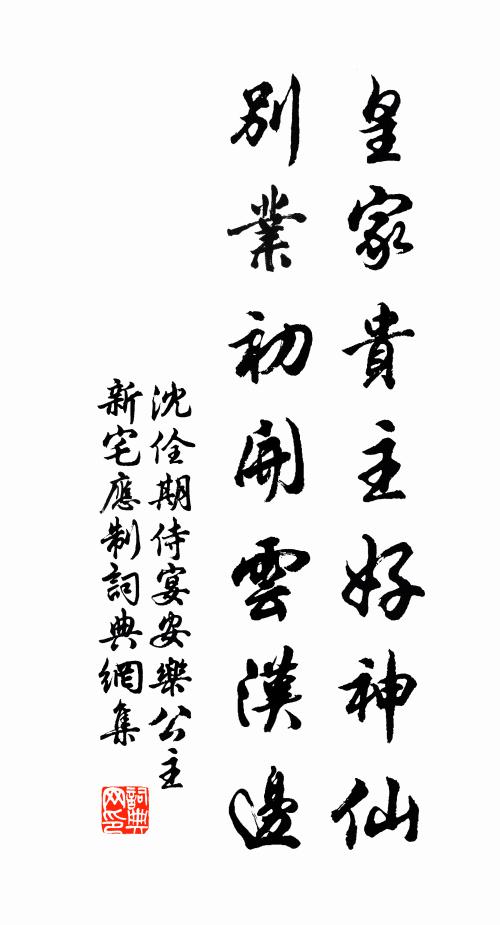 皇家貴主好神仙
別業初開雲漢邊
沈佺期侍宴安樂公主
新宅應制詞典網集
詞典
网印